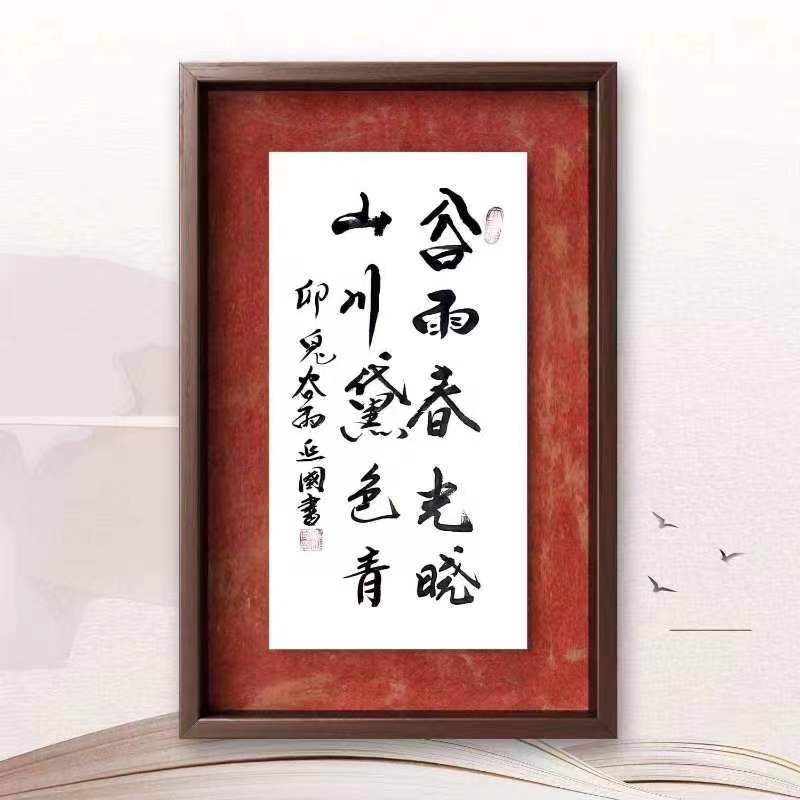 谷雨春光晓
山川黛色青
卯兔谷雨延國書